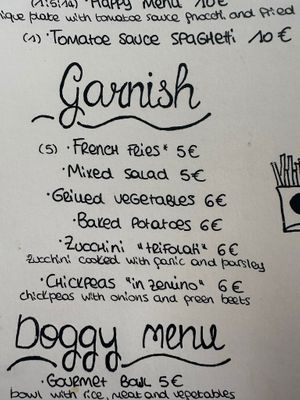 (1;5;14) · Happy Menu 10€
ique plate with tomatoe sauce gnocchi and fried
(1) · Tomatoe sauce spaghetti 10€
Garnish
(5) · French Fries* 5€
· Mixed salad 5€
· Grilled vegetables 6€
· Baked Potatoes 6€
· Zucchini "trifolati" 6€
zucchini cooked with garlic and parsley
· Chickpeas "in zemino" 6€
chickpeas with onions and green beets
Doggy menu
· Gourmet Bowl 5€
bowl with rice, meat and vegetables